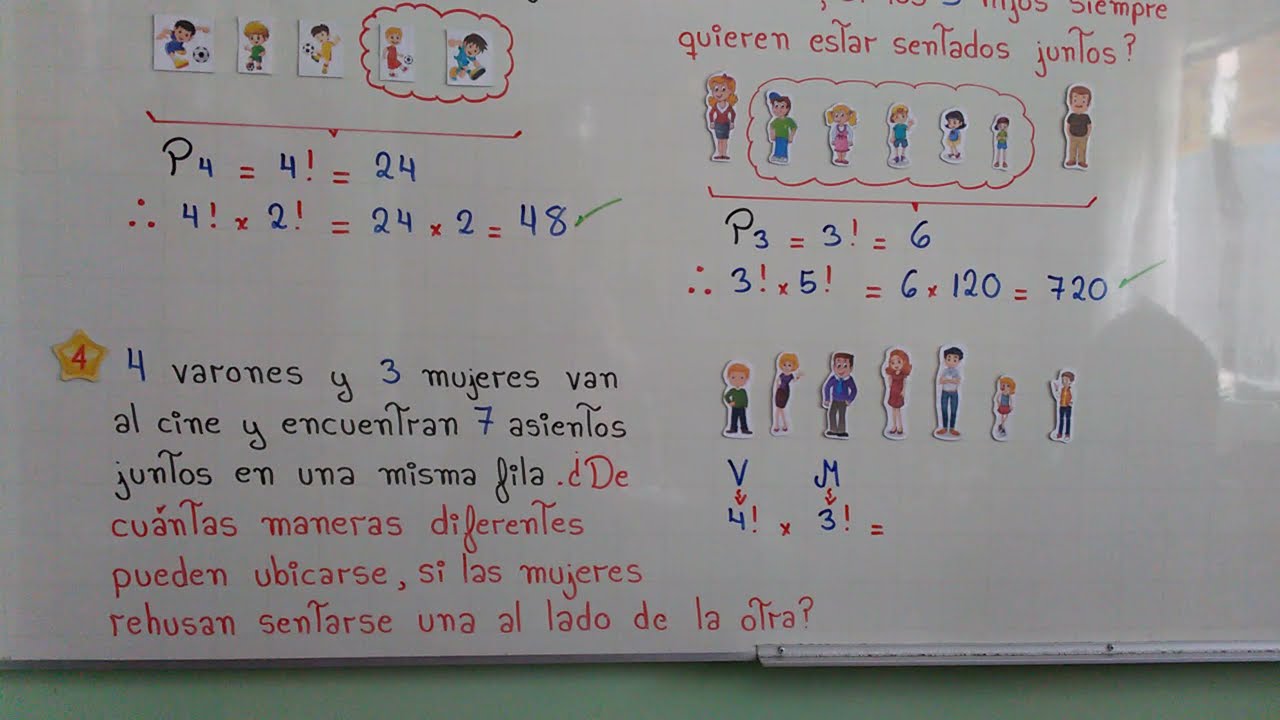 hijos siempre
quieren estar sentados juntos?
P4 = 4! = 24
∴ 4! x 2! = 24 x 2 = 48 ✓
P3 = 3! = 6
∴ 3! x 5! = 6 x 120 = 720 ✓
4
4 varones y 3 mujeres van
al cine y encuentran 7 asientos
juntos en una misma fila. ¿De
cuántas maneras diferentes
pueden ubicarse, si las mujeres
rehusan sentarse una al lado de la otra?
V M
4! x 3! =